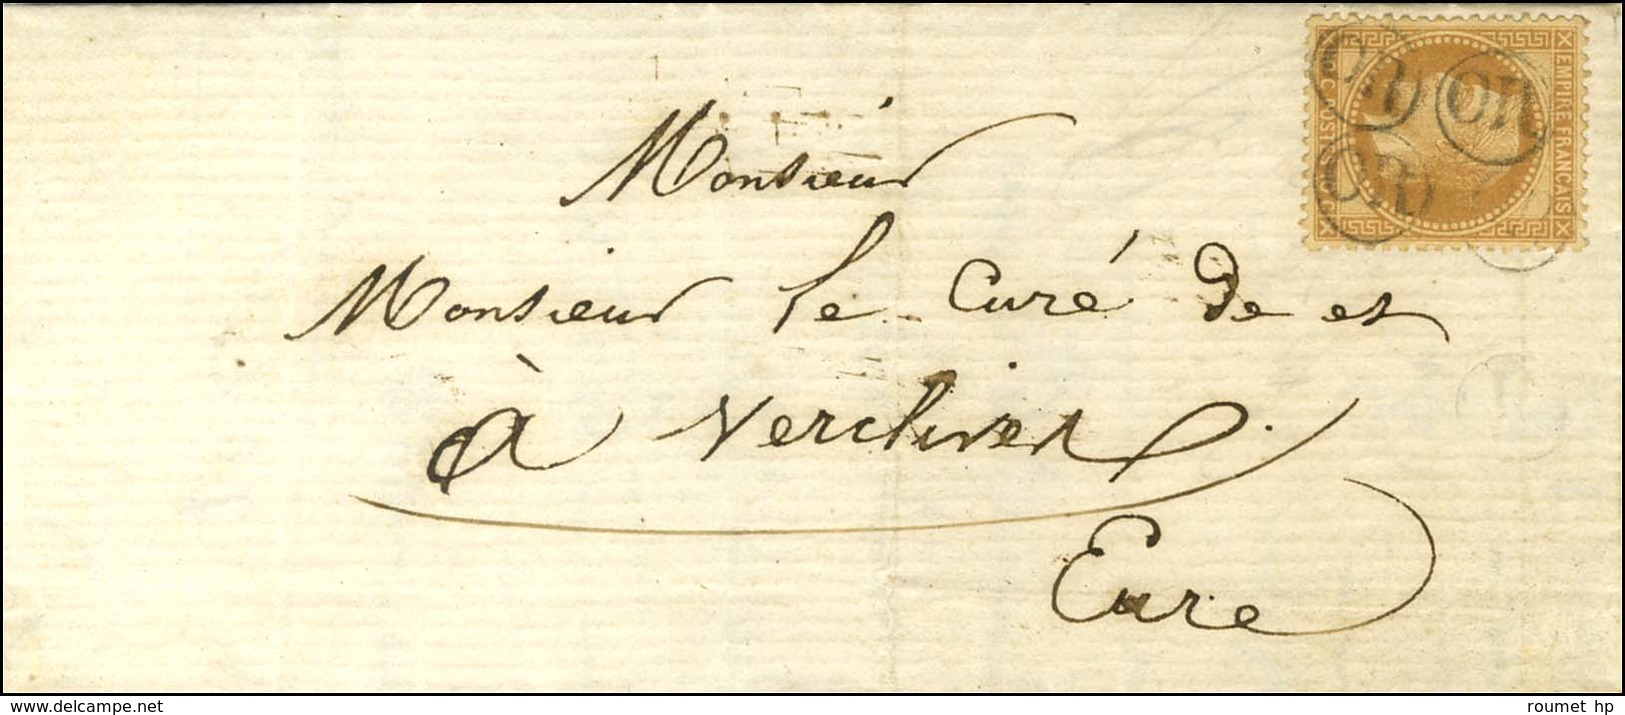 EMPIRE FRANCAIS
OR
OR
OR
Monsieur
Monsieur le Curé de et
à Verclives
Eure
www.delcampe.net
roumet hp